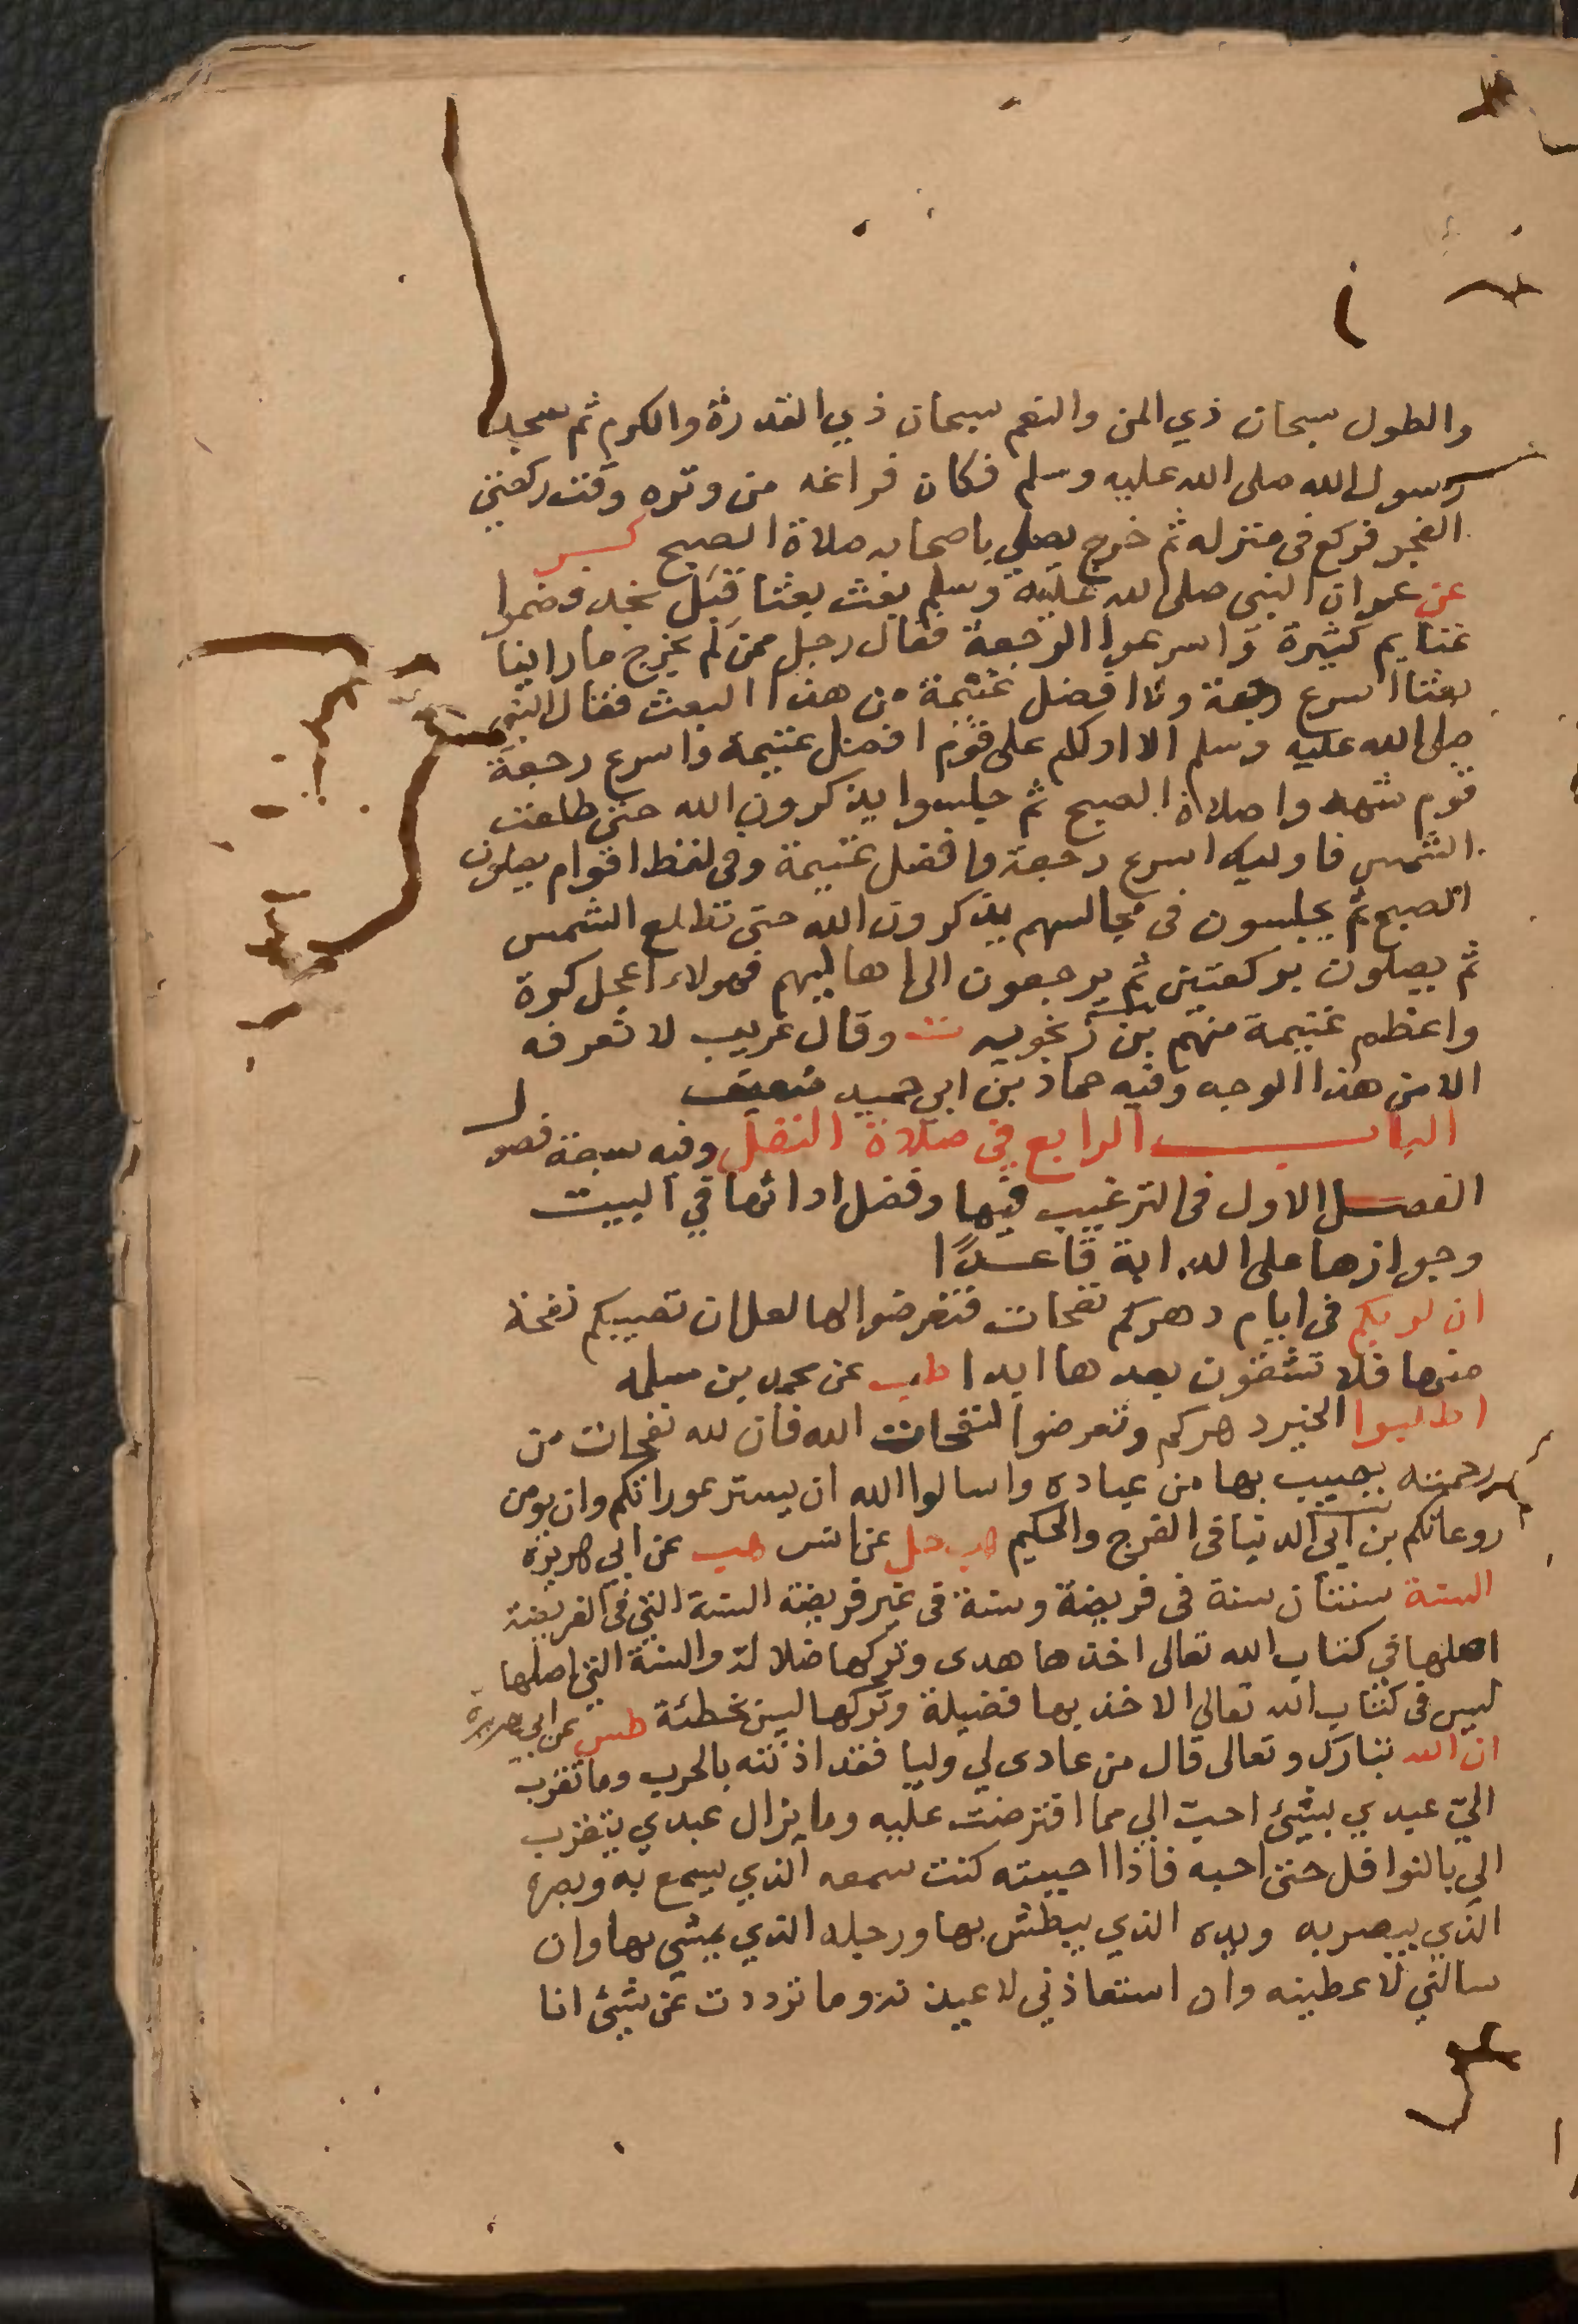 والطول سبحان ذي المن والنعم سبحان ذي القدرة والكرم ثم سجد
رسول الله صلى الله عليه وسلم فكان فراغه من وتره وقت ركعتي
الفجر فركع في منزله ثم خرج يصلي باصحابه صلاة الصبح كر
عن عمران النبي صلى الله عليه وسلم بعث بعثا قبل نجد فغنموا
غنايم كثيرة واسرعوا الرجعة فقال رجل ممن لم يخرج ما راينا
بعثا اسرع رجعة ولا افضل غنيمة من هذا البعث فقال النبي
صلى الله عليه وسلم الا ادلكم على قوم افضل غنيمة واسرع رجعة
قوم شهدوا صلاة الصبح ثم جلسوا يذكرون الله حتى طلعت
الشمس فاوليك اسرع رجعة وافضل غنيمة وفي لفظ اقوام يصلون
الصبح ثم يجلسون في مجالسهم يذكرون الله حتى تطلع الشمس
ثم يصلون ركعتين ثم يرجعون الى اهاليهم فهولاء اعجل كرة
واعظم غنيمة منهم بن زنجويه ت وقال غريب لا نعرفه
الا من هذا الوجه وفيه حماد بن ابي حميد ضعيف
الباب الرابع في صلاة النفل وفيه سبعة فصول
الفصل الاول في الترغيب فيها وفضل ادائها في البيت
وجوازها على الدابة قاعدًا
ان لربكم في ايام دهركم نفحات فتعرضوا لها لعل ان تصيبكم نفحة
منها فلا تشقون بعدها ابدا طب عن محمد بن مسلمه
اطلبوا الخير دهركم وتعرضوا لنفحات الله فان لله نفحات من
رحمته يصيب بها من عباده واسالوا الله ان يستر عوراتكم وان يومن
روعاتكم بن ابي الدنيا في الفرج والحكيم هب حل عن انس هب عن ابي هريرة
السنة سنتان سنة في فريضة وسنة في غير فريضة السنة التي في الفريضة
اصلها في كتاب الله تعالى اخذها هدى وتركها ضلالة والسنة التي اصلها
ليس في كتاب الله تعالى الاخذ بها فضيلة وتركها ليس بخطئة طس عن ابي هريرة
ان الله تبارك وتعالى قال من عادى لي وليا فقد اذنته بالحرب وما تقرب
اليّ عبدي بشيئ احبّ الي مما افترضت عليه وما يزال عبدي يتقرب
الي بالنوافل حتى احبه فاذا احببته كنت سمعه الذي يسمع به وبصره
الذي يبصر به ويده الذي يبطش بها ورجله الذي يمشي بها وان
سالني لاعطينه وان استعاذني لاعيذنه وما ترددت عن شيئ انا